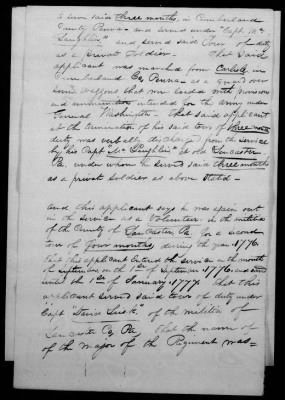 to serve said three months, in Cumberland
County Penna - and served under "Capt Mc
Laughlin" and served said Tour of duty
as a private soldier. That said
applicant was marched from Carlisle in
Cumberland Co Penna - as a guard over
some waggons that were loaded with provisions
and ammunition intended for the army under
General Washington - That said applicant
at the termination of his said tour of three months
duty was verbally discharged from the service
by his Capt "Mc Laughlin" at Lancaster
Pa. under whom he served said three months
as a private soldier as above stated -
And this applicant says he was again out
in the service as a Volunteer in the militia
of the County of Lancaster Pa. for a second
tour of four months, during the year 1776.
That this applicant entered the service in the month
of September on the 1st of September 1776 and served
until the 1st of January 1777. That this
applicant served said tour of duty under
"Capt David Lusk", of the militia of
Lancaster Co Pa, That the name of
of the major of the Regiment was -